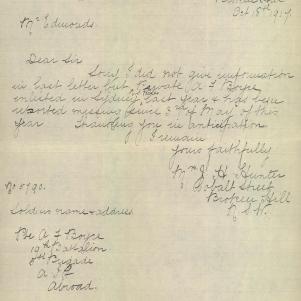 Oct 15th 1917
Mr Edmonds
Dear Sir
Sorry I did not give information
in last letter but Private A F Boyce
enlisted in Sydney last year & has been
reported missing since 3rd of May of this
year Thanking you in anticipation
I remain
Yours faithfully
Mrs J. H Hunter
Cobalt Street
Broken Hill
N S W
No 5790.
Soldiers name & address
Pte A F Boyce
19th Battalion
Brigade
A I F
Abroad.